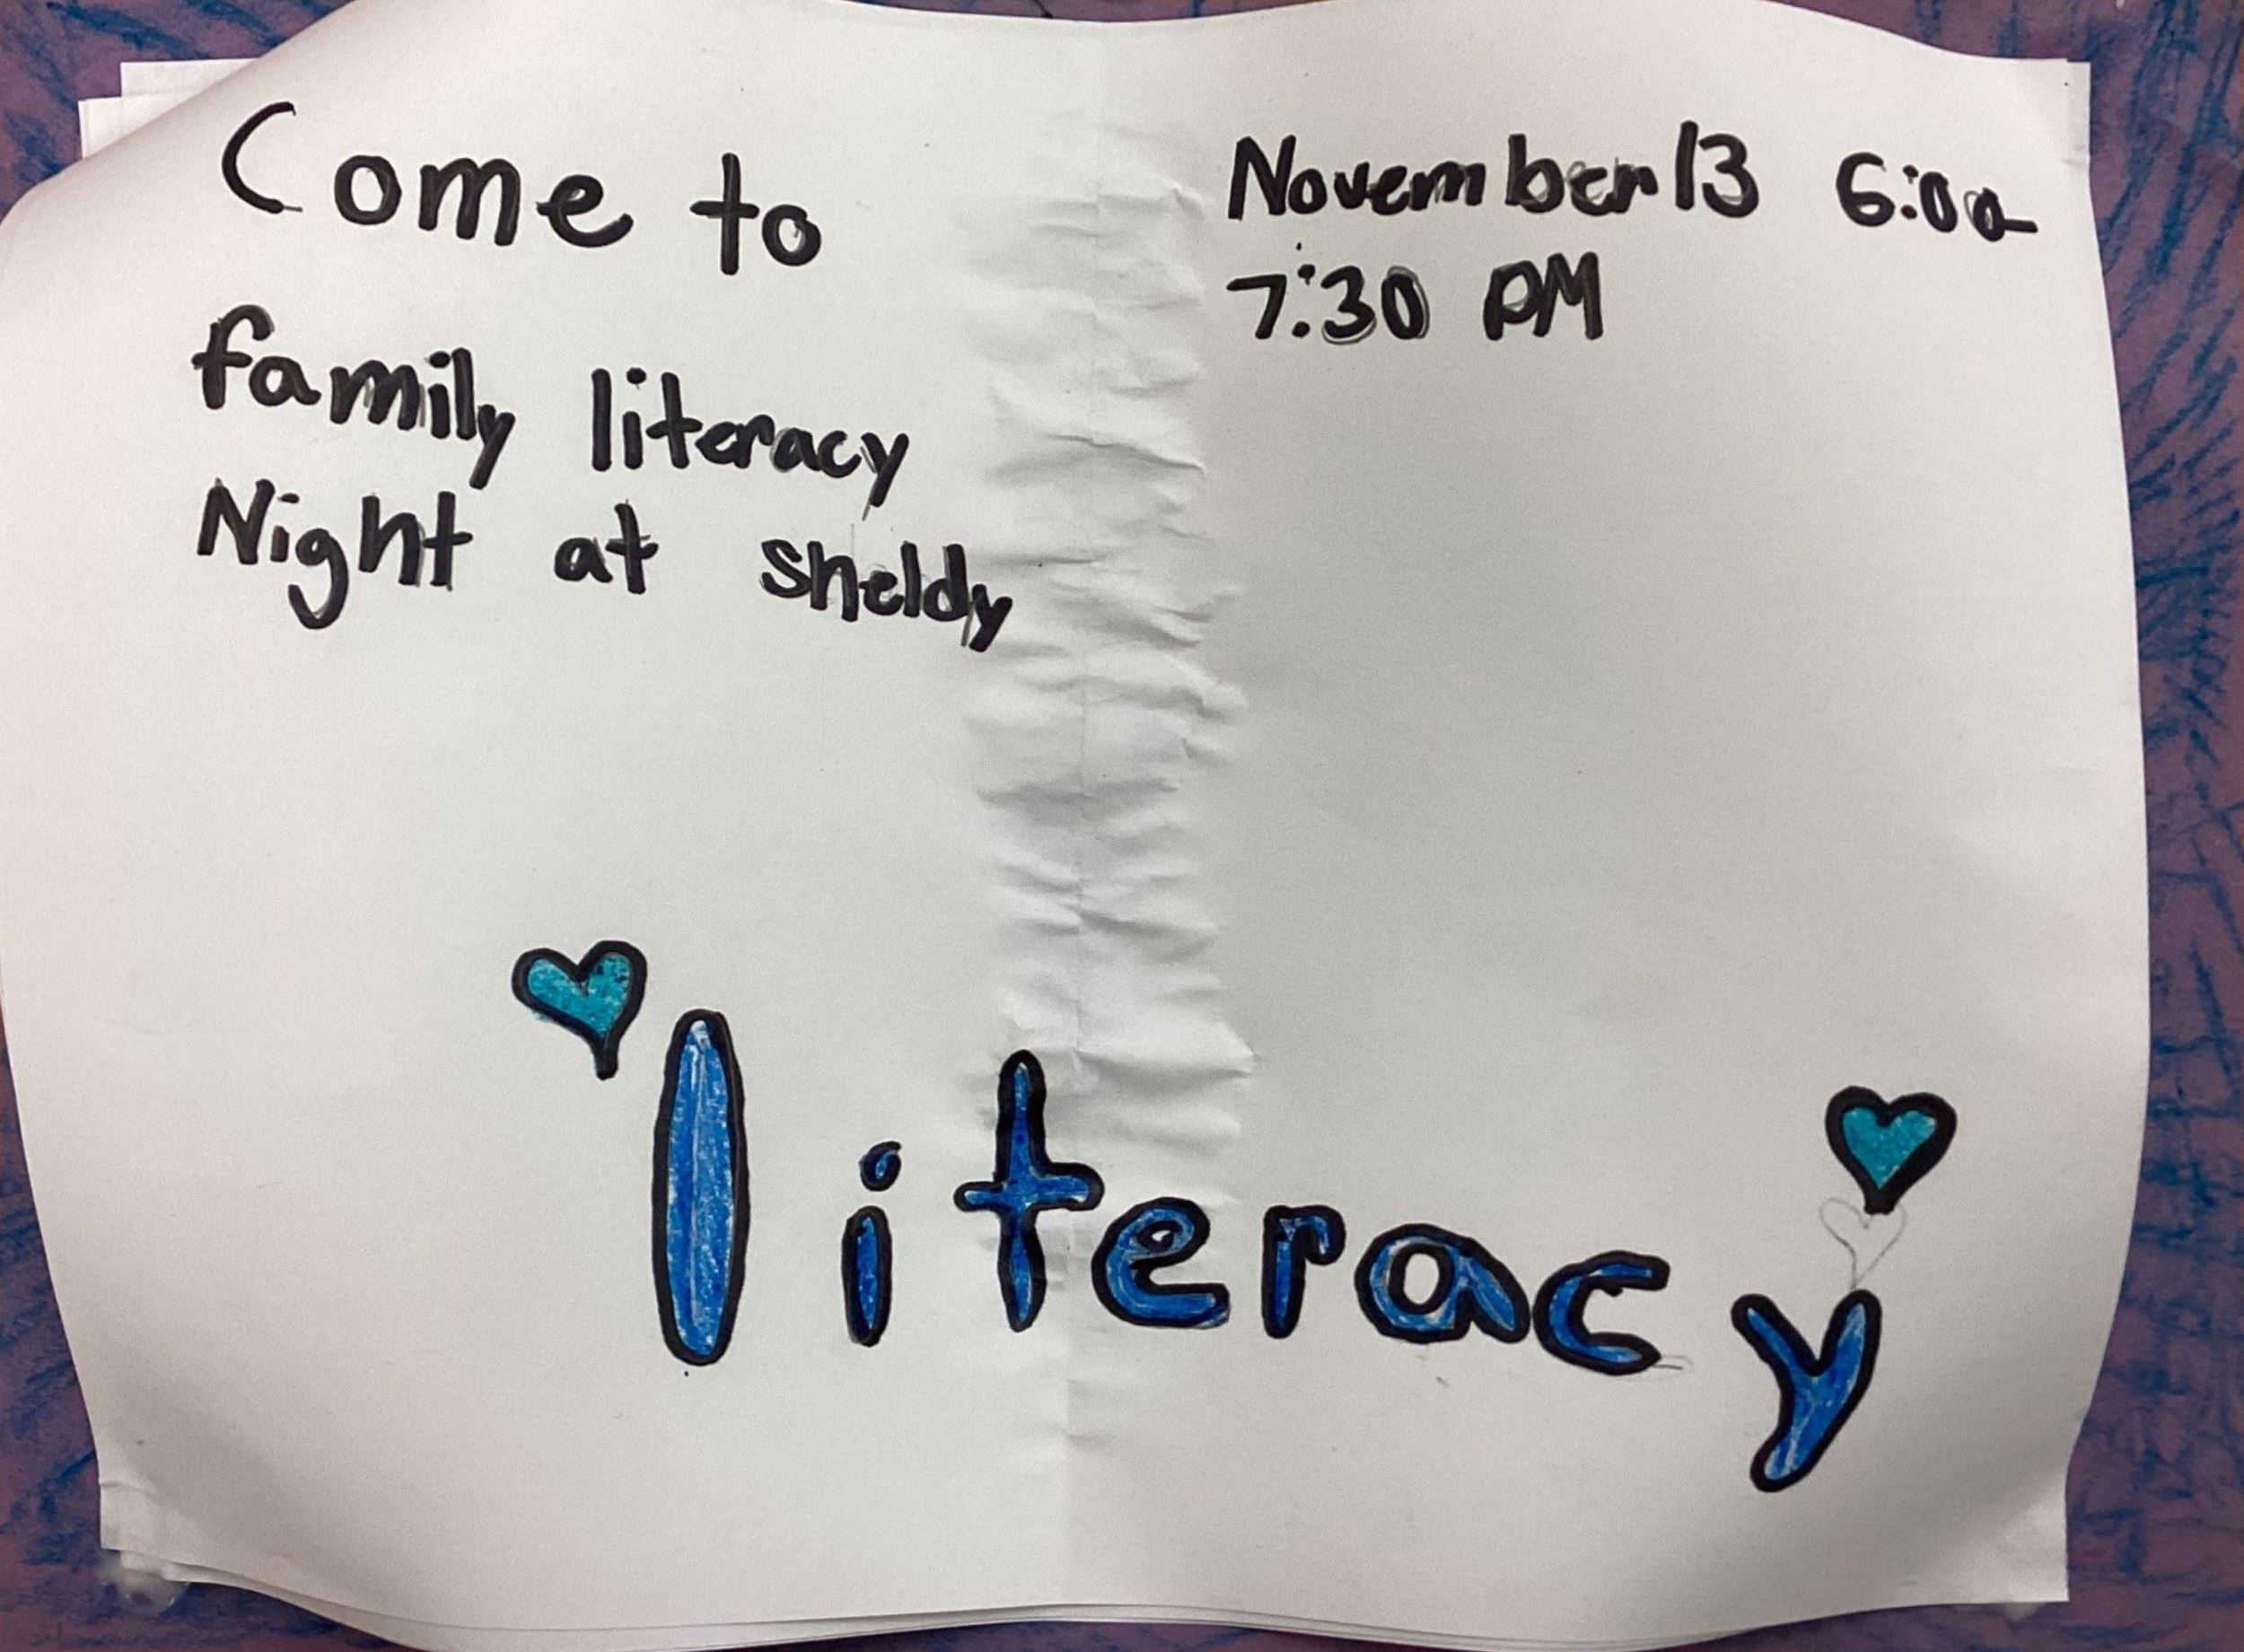 Come to
family literacy
Night at sheldy
November 13 6:00-
7:30 PM
literacy